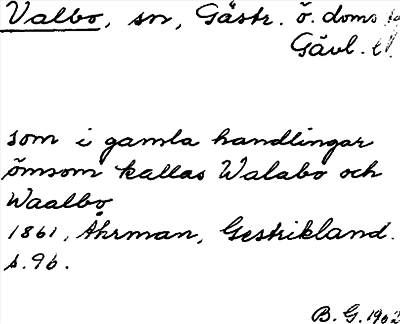 Valbo, sn, Gästr. ö. doms
Gävl. l.
som i gamla handlingar
ömsom kallas Walabo och
Waalbo
1861, Åhrman, Gestrikland.
s. 96.
B. G. 1962